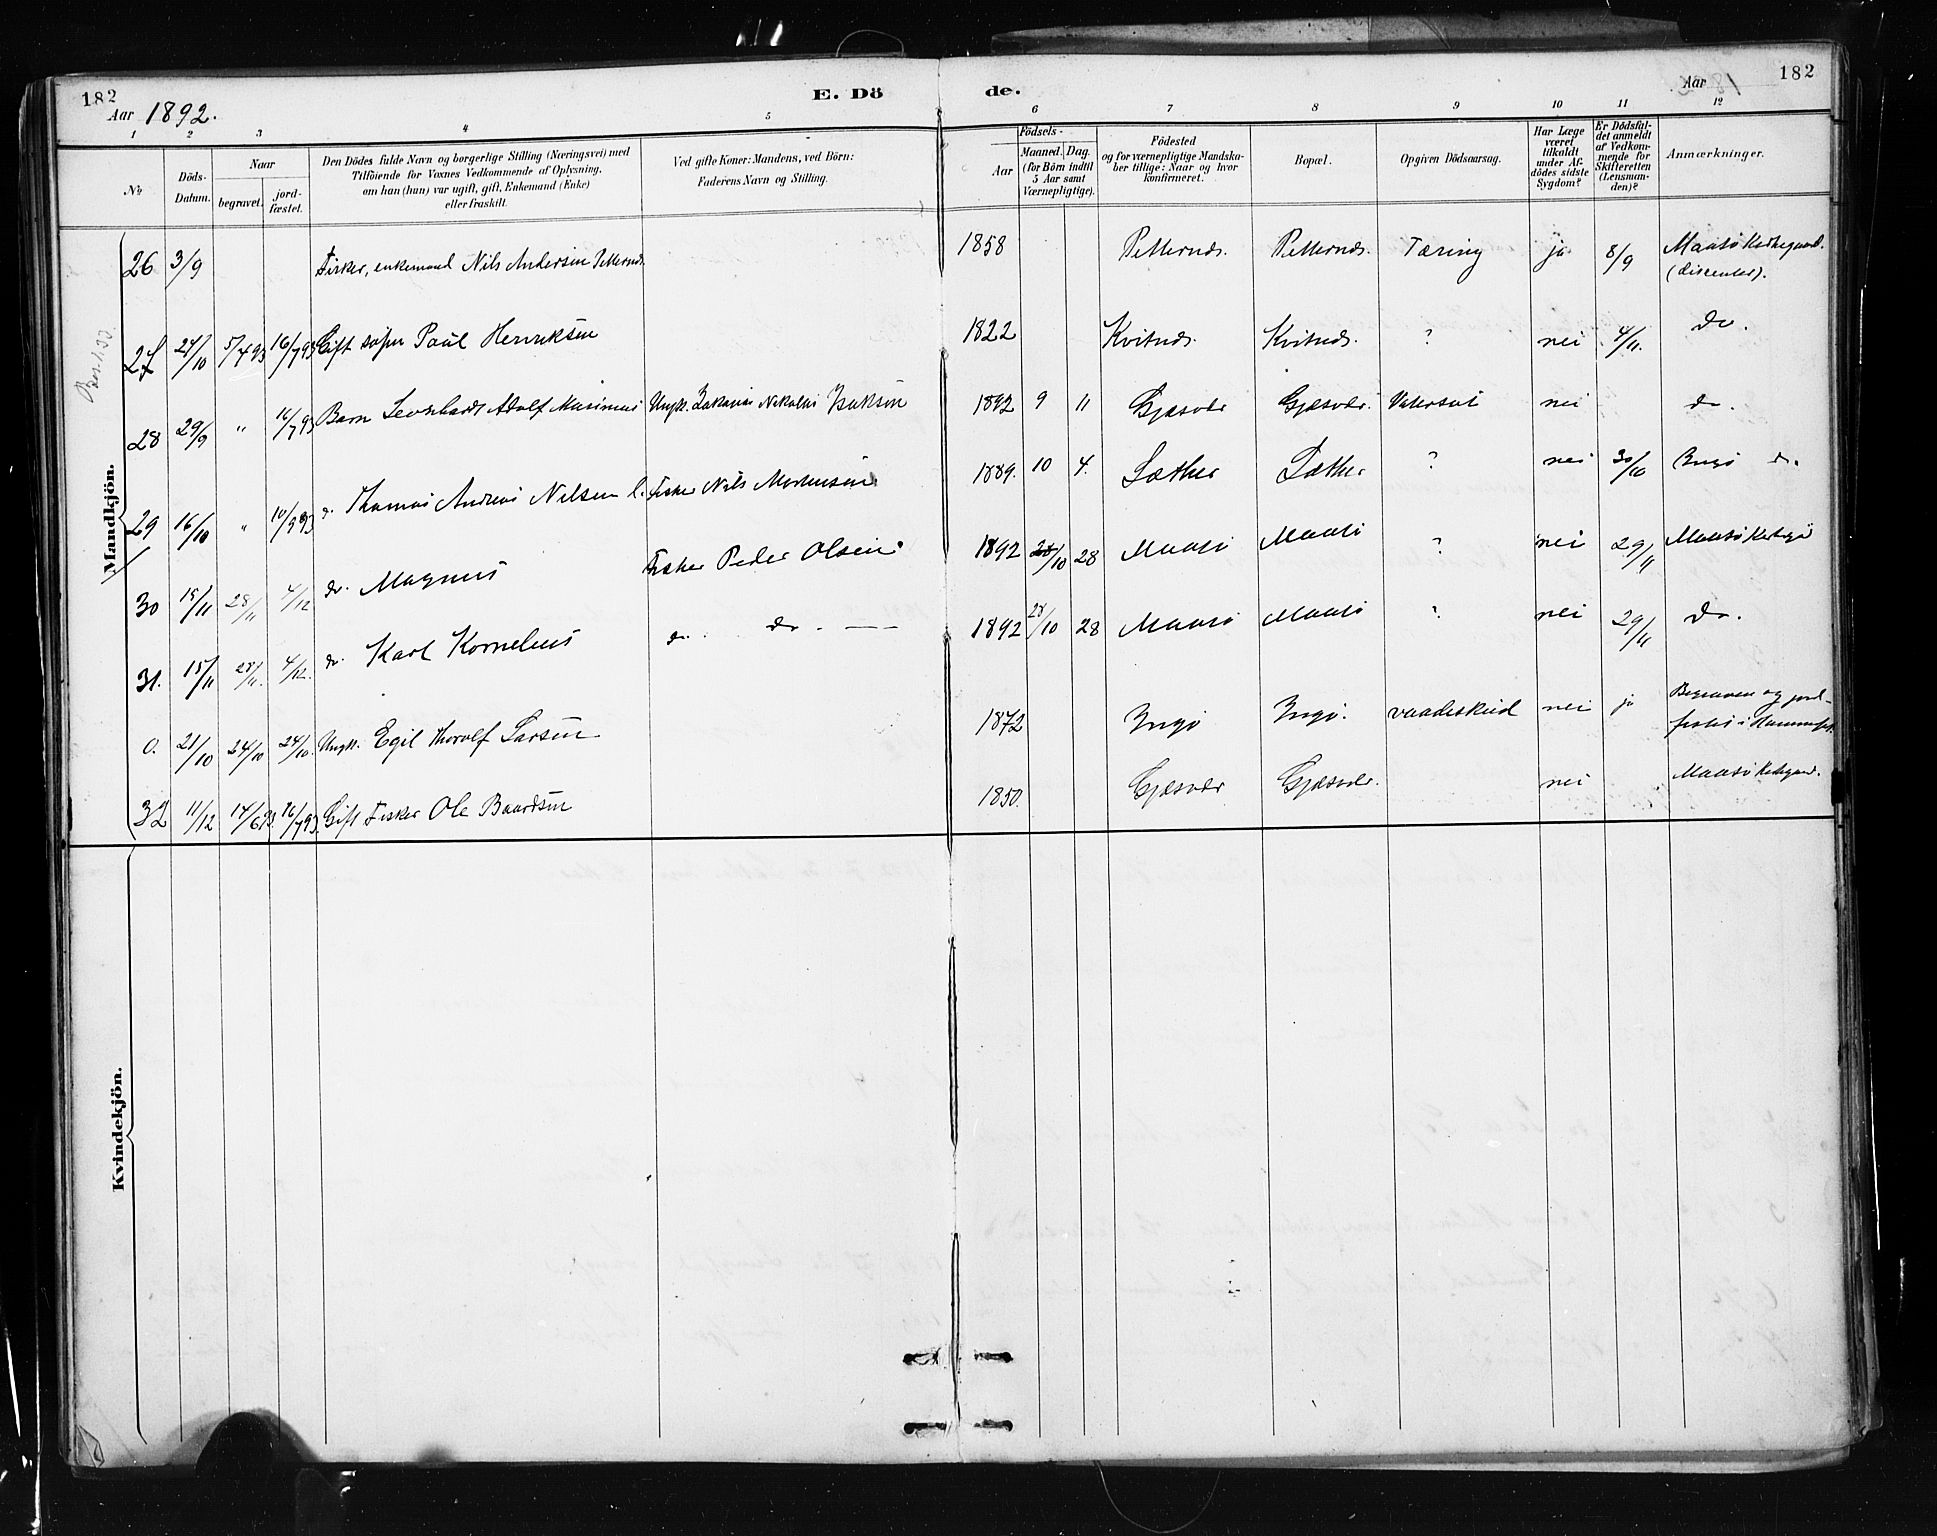 182
Aar 1892.
E. Dö
de.
Aar
182
1 2 3 4 5 6 7 8 9 10 11 12
No
Döds-
Datum.
Naar
begravet.
jord-
fæstet.
Den Dödes fulde Navn og borgerlige Stilling (Næringsvei) med
Tilföiende for Voxnes Vedkommende af Oplysning,
om han (hun) var ugift, gift, Enkemand (Enke)
eller fraskilt.
Ved gifte Koner: Mandens, ved Börn:
Faderens Navn og Stilling.
Födsels-
Aar
Maaned.
Dag.
(for Börn indtil
5 Aar samt
Værnepligtige).
Födested
og for værnepligtige Mandska-
ber tillige: Naar og hvor
konfirmeret.
Bopæl.
Opgiven Dödsaarsag.
Har Læge
været
tilkaldt
under Af-
dödes sidste
Sygdom?
Er Dödsfal-
det anmeldt
af Vedkom-
mende for
Skifteretten
(Lensman-
den)?
Anmærkninger.
Mandkjön.
26 3/9 Fisker, enkemand Nils Andersen Pettersnds. 1858 Pettersnds. Pettersnds. Tæring ja 8/9 Maasö Kirkegaard.
(dissenter).
27 24/10 5/4 93 16/7 93 Gift Paul Henriksen 1822 Kvitnds. Kvitnds. ? nei 4/11. do.
28 29/9 " 16/7 93 Barn Leonhard Adolf Masimus Ungk. Zakarias Nikolai Isaksen 1892 9 11 Gjæsvær Gjæsvær. nei do.
29 16/10 " 10/9 93 do Thomas Andreas Nilsen Fisker Nils Mortensen 1889. 10 4. Sæther Sæther ? nei 30/10 Ingö do.
30 15/11 28/11 4/12 do. Magnus Fisker Peder Olsen. 1892 28/10 28 Maasö Maasö ? nei 29/11 Maasö Kirkeg.
31. 15/11 28/11. 4/12. do. Karl Kornelius do. do. 1892 28/10 28 Maasö Maasö ? nei 29/11 do.
0. 21/10 24/10 24/10. Ungk. Egil Thorolf Larsen 1872 Ingö Ingö. vaadeskud nei ja Begraven og jord-
fæstet i Hammerfest.
32 11/12 14/6 93. 16/7 93. Gift Fisker Ole Baardsen 1850. Gjæsvær Gjæsvær. nei Maasö Kirkegaard.
Kvindekjön.